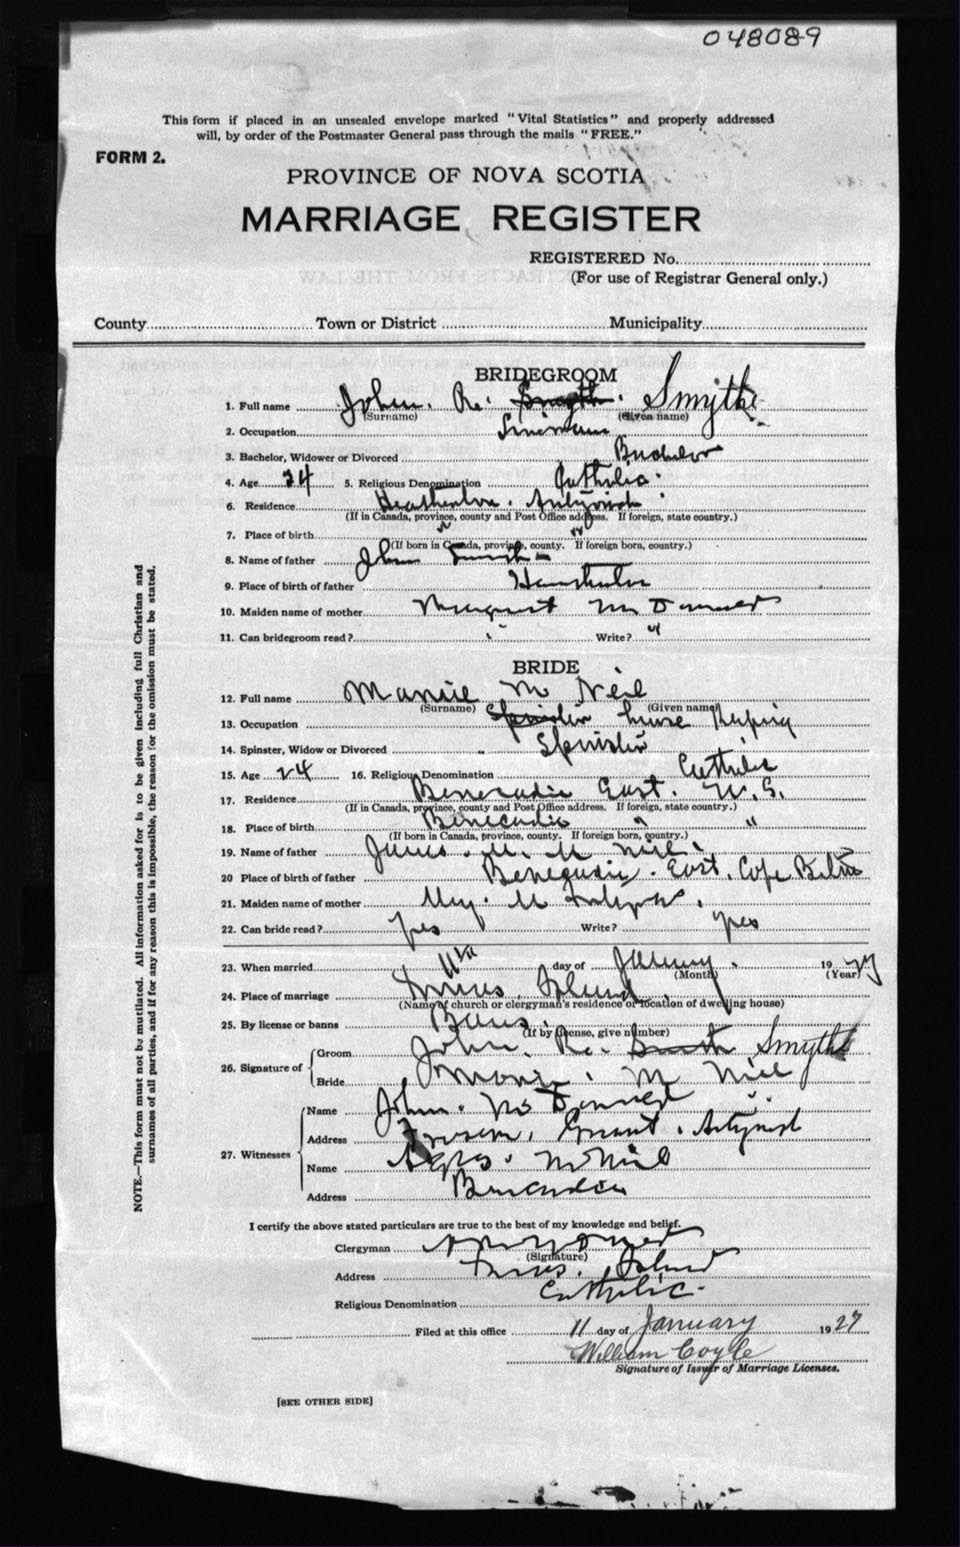 048089
This form if placed in an unsealed envelope marked "Vital Statistics" and properly addressed
will, by order of the Postmaster General pass through the mails "FREE."
FORM 2.
PROVINCE OF NOVA SCOTIA
MARRIAGE REGISTER
REGISTERED No.
(For use of Registrar General only.)
County Town or District Municipality
BRIDEGROOM
1. Full name John. Smyth. Smythe
(Surname) (Given name)
2. Occupation
3. Bachelor, Widower or Divorced Bachelor
4. Age 24 5. Religious Denomination Catholic
6. Residence Heatherton. Antigonish
(If in Canada, province, county and Post Office address. If foreign, state country.)
7. Place of birth " "
(If born in Canada, province, county. If foreign born, country.)
8. Name of father John
9. Place of birth of father Heatherton
10. Maiden name of mother Margaret
11. Can bridegroom read? Write? "
BRIDE
12. Full name Mc Neil
(Surname) (Given name)
13. Occupation Spinster house keeping
14. Spinster, Widow or Divorced Spinster
15. Age 24 16. Religious Denomination Catholic
17. Residence Benecadie East. N.S.
(If in Canada, province, county and Post Office address. If foreign, state country.)
18. Place of birth Benecadie " "
(If born in Canada, province, county. If foreign born, country.)
19. Name of father
20 Place of birth of father East. Cape Breton
21. Maiden name of mother
22. Can bride read? Yes Write? yes
23. When married 11th day of January. 1927
(Month) (Year)
24. Place of marriage Island
(Name of church or clergyman's residence or location of dwelling house)
25. By license or banns Banns
(If by license, give number)
26. Signature of
Groom John. Smyth Smythe
Bride Mc Neil
27. Witnesses
Name John.
Address Grant. Antigonish
Name McNeil
Address Benecadie
I certify the above stated particulars are true to the best of my knowledge and belief.
Clergyman
(Signature)
Address Island
Religious Denomination Catholic
Filed at this office 11 day of January 1927
William Coyle
Signature of Issuer of Marriage Licenses.
[SEE OTHER SIDE]
NOTE.—This form must not be mutilated. All information asked for is to be given including full Christian and
surnames of all parties, and if for any reason this is impossible, the reason for the omission must be stated.